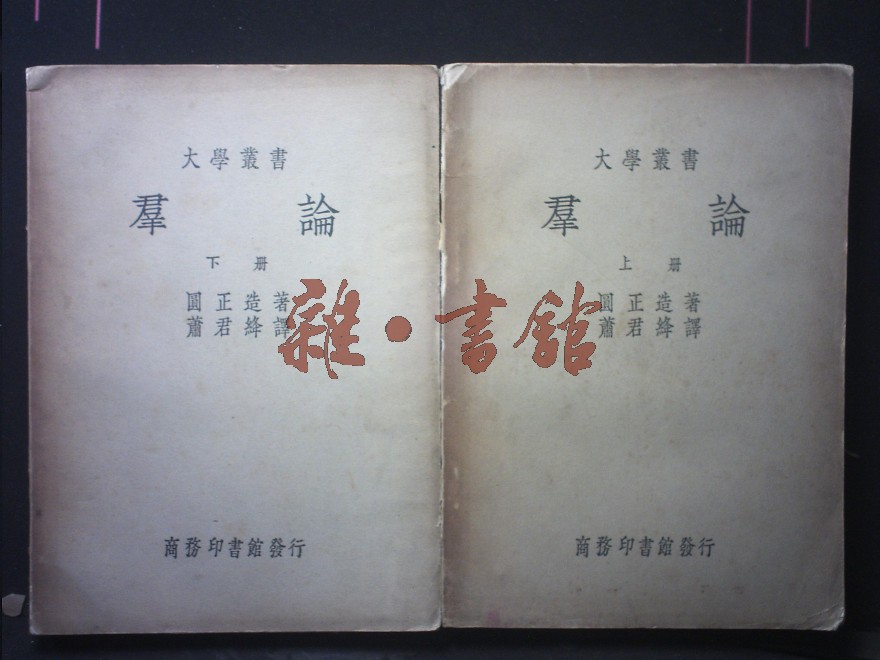 大學叢書
羣論
下册
圓正造著
蕭君絳譯
商務印書館發行
大學叢書
羣論
上册
圓正造著
蕭君絳譯
商務印書館發行
雜·書館